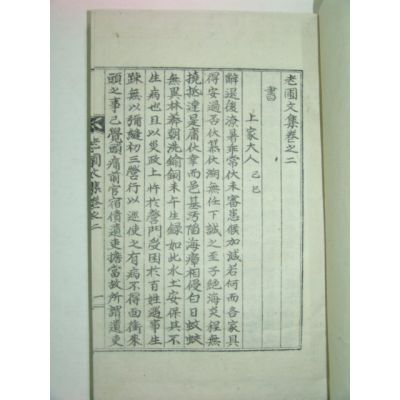 老圃文集卷之二
書
上家大人 己巳
辭退後潦暑非常伏未審愆候加減若何而各家具
得安過否伏慕伏溯無任下誠之至子絶海炎程無
撓抵達是庸伏幸而邑基汚陷海瘴相侵白日蚊蛟
無異林莽朝洗鍮銅未午生綠如此水土安保其不
生病也且以災政上忤於營門受困於百姓遇事生
踈無以彌縫初三營行以巡使之有病不得面衝來
頭之事已覺頭痛前官宿債還更擔當故所謂還更
老圃文集卷之二
一